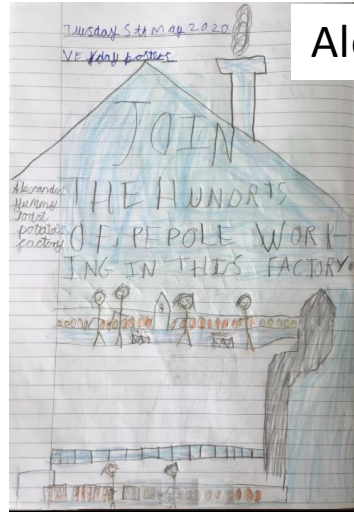 Tuesday 5th May 2020
VE day posters
Ale
JOIN
THE HUNDRTS
OF PEPOLE WORK-
ING IN THIS FACTORY.
Alexander
yummy
potatoe
factory